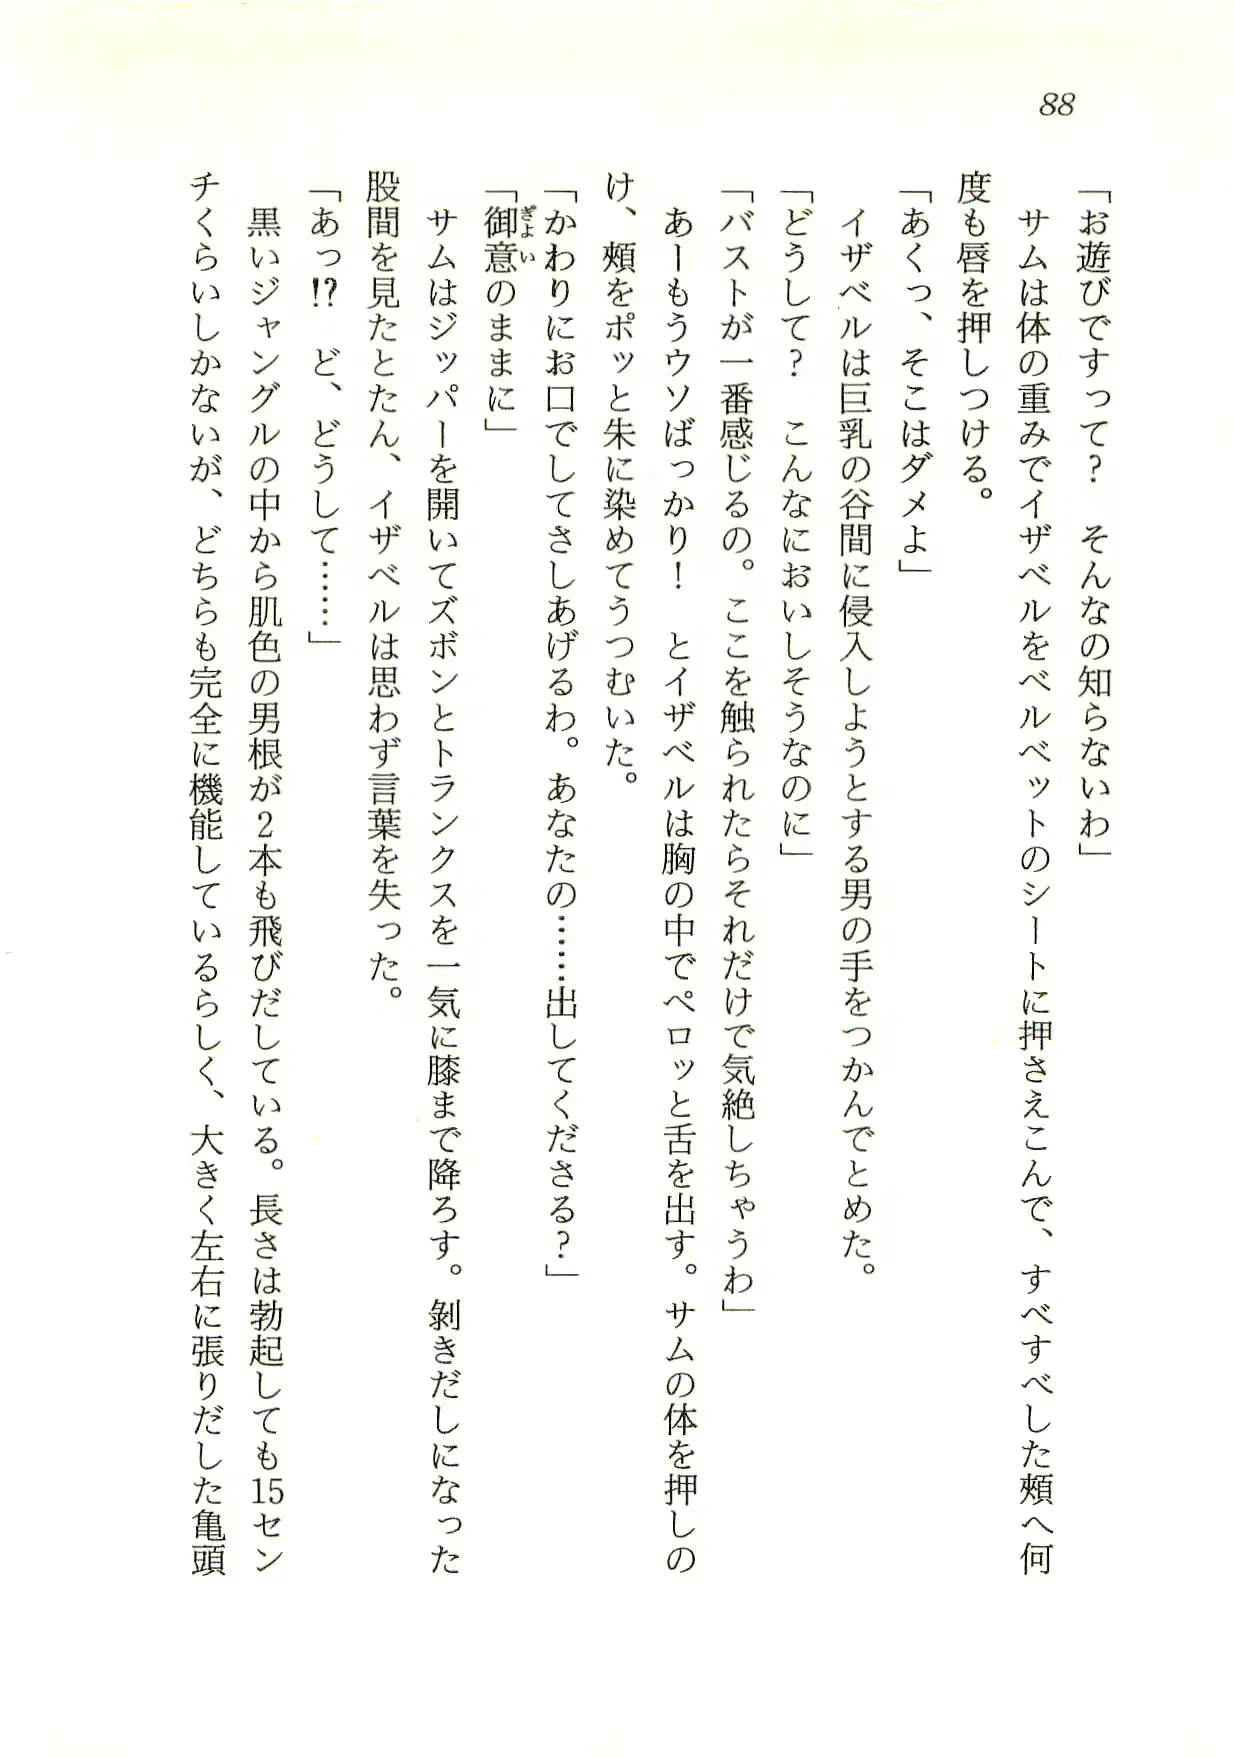 88
「お遊びですって？　そんなの知らないわ」
　サムは体の重みでイザベルをベルベットのシートに押さえこんで、すべすべした頰へ何
度も唇を押しつける。
「あくっ、そこはダメよ」
　イザベルは巨乳の谷間に侵入しようとする男の手をつかんでとめた。
「どうして？　こんなにおいしそうなのに」
「バストが一番感じるの。ここを触られたらそれだけで気絶しちゃうわ」
　あーもうウソばっかり！　とイザベルは胸の中でペロッと舌を出す。サムの体を押しの
け、頰をポッと朱に染めてうつむいた。
「かわりにお口でしてさしあげるわ。あなたの……出してくださる？」
「御意のままに」
ぎょい
　サムはジッパーを開いてズボンとトランクスを一気に膝まで降ろす。剝きだしになった
股間を見たとたん、イザベルは思わず言葉を失った。
「あっ!?　ど、どうして……」
　黒いジャングルの中から肌色の男根が2本も飛びだしている。長さは勃起しても15セン
チくらいしかないが、どちらも完全に機能しているらしく、大きく左右に張りだした亀頭